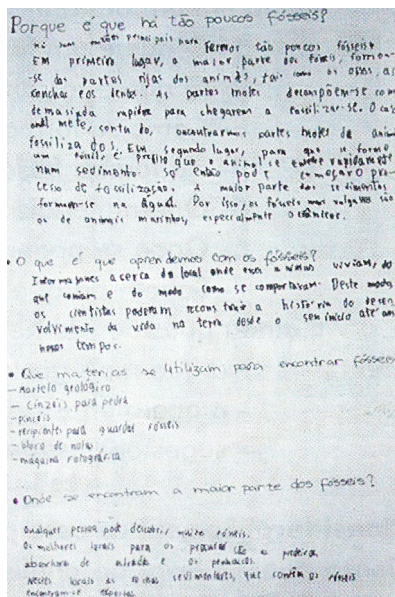 Porque é que há tão poucos fósseis?
Há duas razões principais para termos tão poucos fósseis.
EM primeiro lugar, a maior parte dos fósseis, formou-
-se das partes rijas dos animais, tais como os ossos, as
conchas e os dentes. As partes moles decompõem-se com
demasiada rapidez para chegarem a fossilizar-se. Ocasi
onalmente, contudo, encontramos partes moles de animais
fossilizados. Em segundo lugar, para que se forme
um fóssil, é preciso que o animal se enterre rapidamente
num sedimento. Só então pode começar o pro-
cesso de fossilização. A maior parte dos sedimentos
formam-se na água. Por isso, os fósseis mais vulgares são
os de animais marinhos, especialmente oceânicos.
• O que é que aprendemos com os fósseis?
Informações acerca do local onde esses animais viviam, do
que comiam e do modo como se comportavam. Deste modo
os cientistas poderam reconstruir a história do desen
volvimento da vida na terra desde o seu início até aos
nossos tempos.
• Que materias se utilizam para encontrar fósseis
- Martelo geológico
- Cinzéis para pedra
- pincéis
- recipientes para guardar fósseis
- bloco de notas
- máquina fotográfica
• Onde se encontram a maior parte dos fósseis?
Qualquer pessoa pode descobrir muitos fósseis.
Os melhores locais para os procurar são as pedreiras,
abertura de estrada e os penhascos.
Nestes locais as rochas sedimentares, que contêm os fósseis
encontram-se expostas.